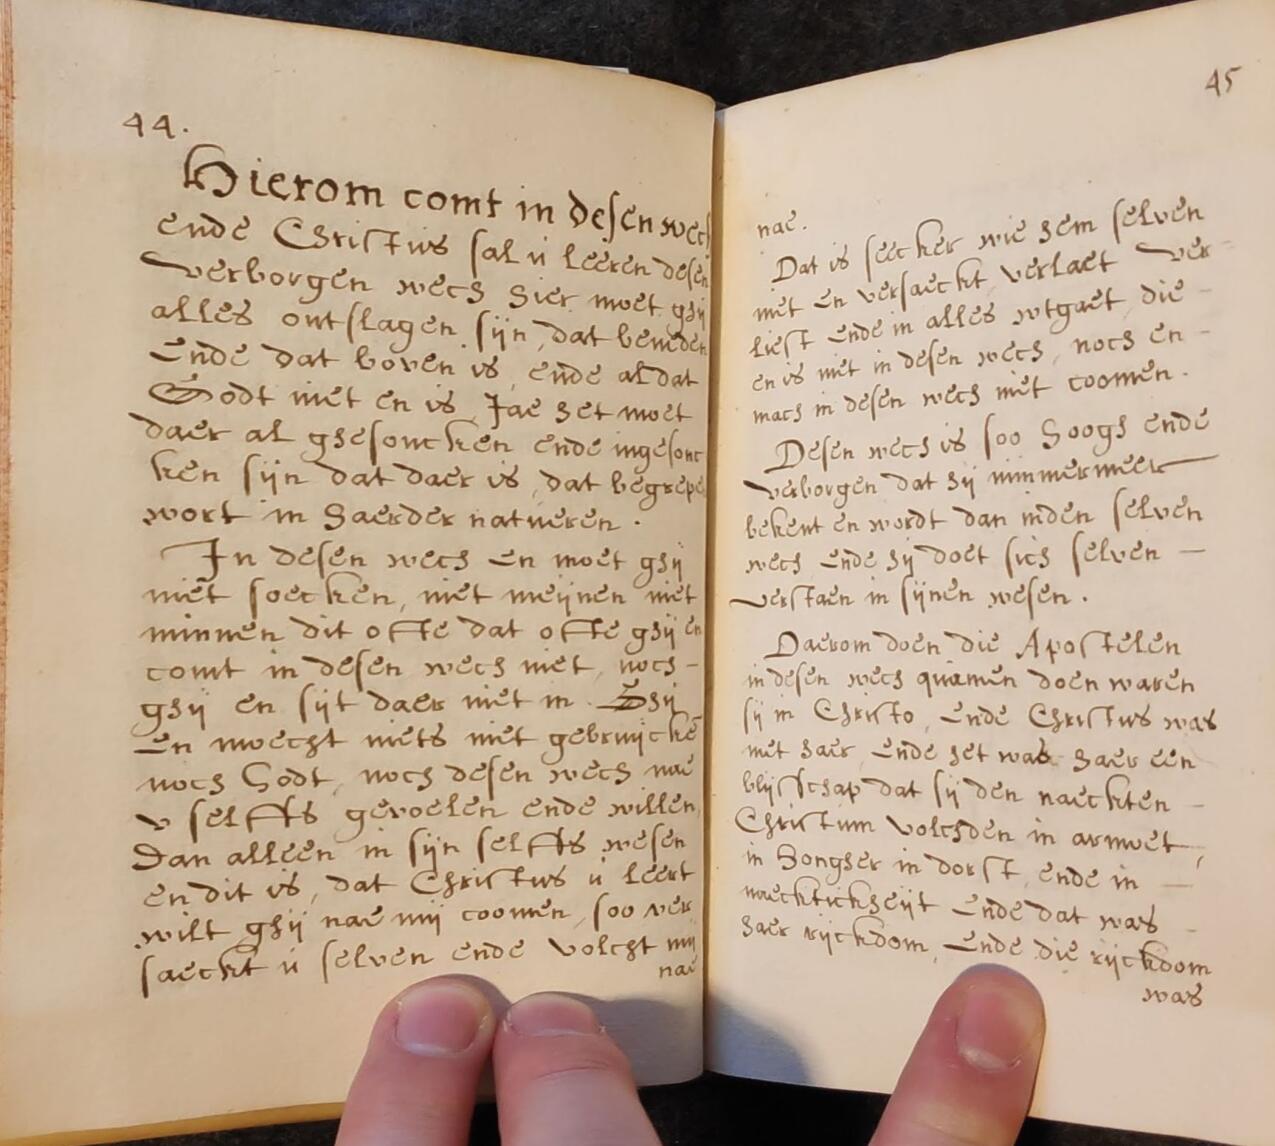 44.
Hierom comt in desen wech
ende Christus sal u leeren desen
verborgen wech hier moet ghij
alles ontslagen sijn, dat beneden
Ende dat boven is, ende al dat
Godt niet en is, Jae het moet
daer al ghesoncken ende ingesonc
ken sijn dat daer is, dat begrepe
wort in haerder natueren.
In desen wech en moet ghij
niet soecken, niet meijnen niet
minnen dit ofte dat ofte ghij en
comt in desen wech niet, noch -
ghij en sijt daer niet in. Ghij
En moecht niets niet gebruijckē
noch Godt, noch desen wech nae
v selffs gevoelen ende willen,
Dan alleen in sijn selffs wesen
en dit is, dat Christus u leert
wilt ghij nae mij coomen, soo ver
saeckt u selven ende volcht mij
nae
45
nae.
Dat is seecker wie hem selven
niet en versaeckt, verlaet Ver-
liest ende in alles wtgaet, die -
en is niet in desen wech, noch en -
mach in desen wech niet coomen.
Desen wech is soo hoogh ende
verborgen dat hij nimmermeer
bekent en wordt dan inden selven
wech, ende hij doet sich selven -
verstaen in sijnen wesen.
Daerom doen die Apostelen
in desen wech quamen doen waren
sij in Christo, ende Christus was
met haer, ende het was haer een
blijschap dat sij den naeckten -
Christum volchden in armoet,
in hongher in dorst, ende in -
naecktickheijt ende dat was -
haer rijckdom, Ende die rijckdom
was